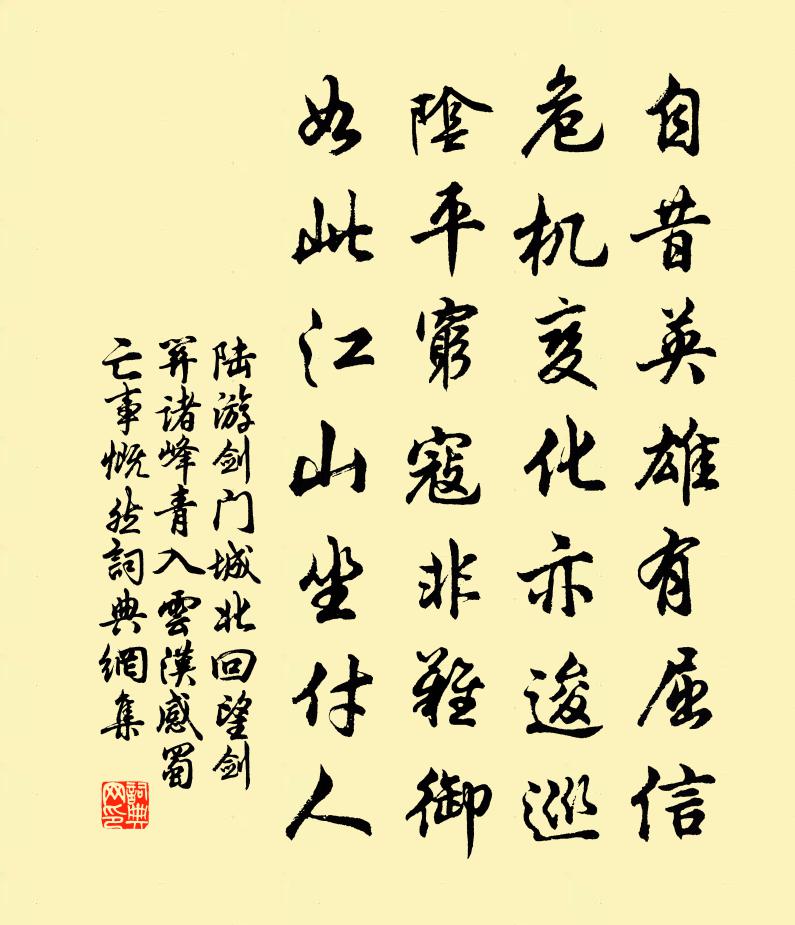 自昔英雄有屈信
危机变化亦逡巡
陰平窮寇非難御
如此江山坐付人
陆游剑门城北回望剑
関诸峰青入雲漢感蜀
亡事慨然詞典網集
詞典
网印